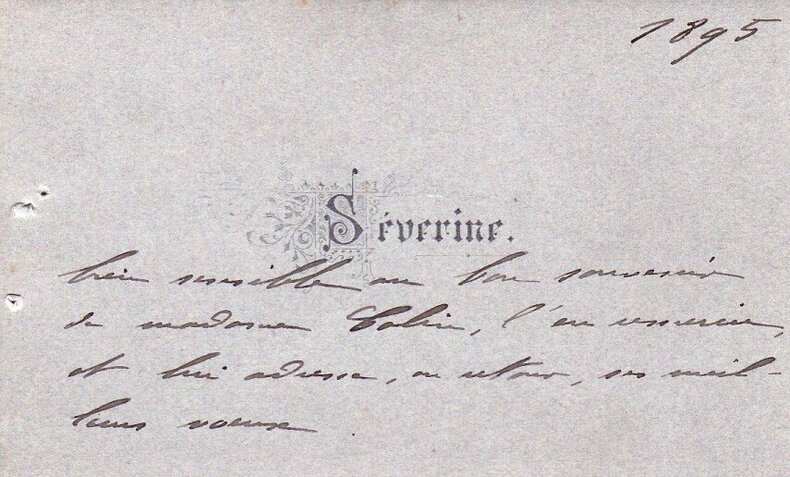 1895
Séverine.
bien sensible au bon souvenir
de madame Colin, l'en remercie,
et lui adresse, en retour, ses meil-
leurs voeux